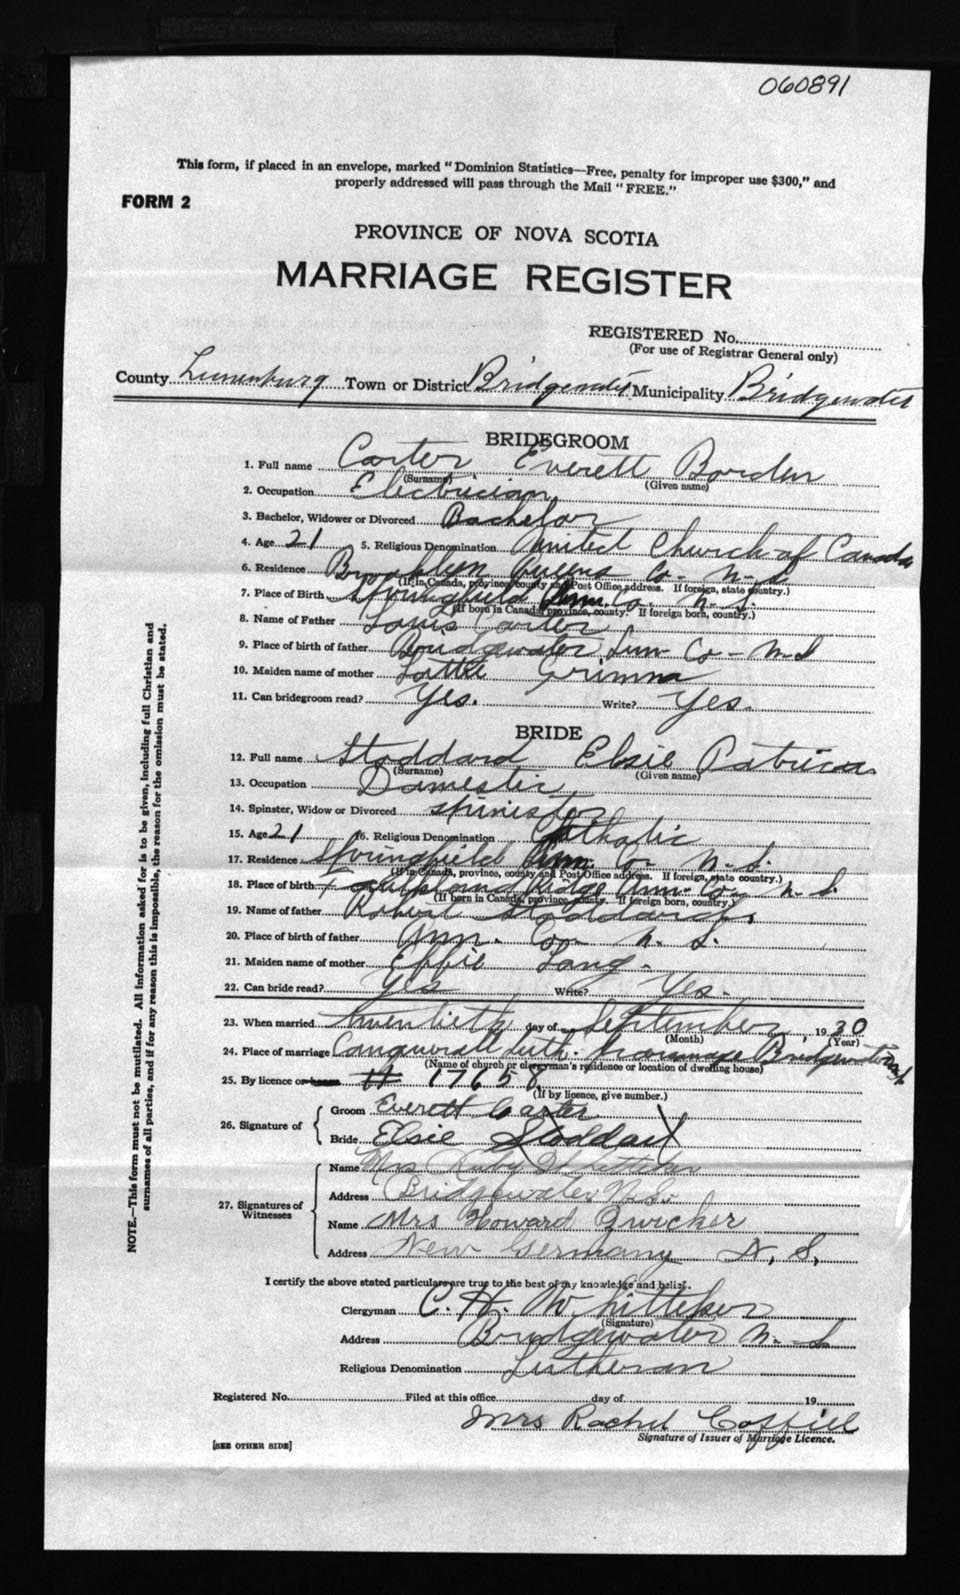 060891
This form, if placed in an envelope, marked "Dominion Statistics—Free, penalty for improper use $300," and
properly addressed will pass through the Mail "FREE."
FORM 2
PROVINCE OF NOVA SCOTIA
MARRIAGE REGISTER
REGISTERED No.
(For use of Registrar General only)
County Lunenburg Town or District Bridgewater Municipality Bridgewater
BRIDEGROOM
1. Full name Carter Everett Borden
(Surname) (Given name)
2. Occupation Electrician
3. Bachelor, Widower or Divorced Bachelor
4. Age 21 5. Religious Denomination United Church of Canada
6. Residence Brooklyn Queens Co- N-S
(If in Canada, province, county and Post Office address. If foreign, state country.)
7. Place of Birth Springfield Ann. Co. N. S
(If born in Canada, province, county. If foreign born, country.)
8. Name of Father Louis Carter
9. Place of birth of father Bridgewater Lun- Co- N-S
10. Maiden name of mother Lottie
11. Can bridegroom read? Yes. Write? Yes.
BRIDE
12. Full name Stoddard Elsie Patricia
(Surname) (Given name)
13. Occupation Domestic
14. Spinster, Widow or Divorced spinister
15. Age 21 16. Religious Denomination Catholic
17. Residence Springfield Ann. Co- N-S.
(If in Canada, province, county and Post Office address. If foreign, state country.)
18. Place of birth Ridge Ann- Co- N-S.
(If born in Canada, province, county. If foreign born, country.)
19. Name of father Robert
20. Place of birth of father Ann. Co- N. S.
21. Maiden name of mother Effie Lang.
22. Can bride read? Yes Write? Yes-
23. When married twentieth day of September 1930
(Month) (Year)
24. Place of marriage Conquerall Luth. Parsonage Bridgewater
(Name of church or clergyman's residence or location of dwelling house)
25. By licence or # 17658
(If by licence, give number.)
26. Signature of
Groom Everett Carter
Bride Elsie Stoddart X
27. Signatures of
Witnesses
Name Mrs Ruby Whitteker
Address Bridgewater N.S.
Name Mrs Howard Zwicker
Address New Germany N, S,
I certify the above stated particulars are true to the best of my knowledge and belief.
Clergyman C. H. Whitteker
(Signature)
Address Bridgewater N-S
Religious Denomination Lutheran
Registered No. Filed at this office day of 19
Mrs Rachel Coffill
Signature of Issuer of Marriage Licence.
[SEE OTHER SIDE]
NOTE.—This form must not be mutilated. All information asked for is to be given, including full Christian and
surnames of all parties, and if for any reason this is impossible, the reason for the omission must be stated.